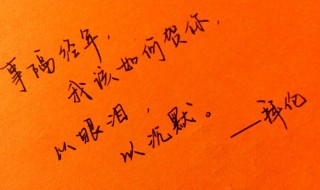 事隔经年，
我该如何贺你，
以眼泪，
以沉默。
——拜伦